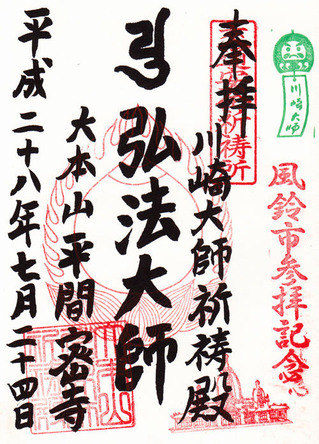 川崎大師
風鈴市参拝記念
奉拝
川崎大師祈祷殿
弘法大師
大本山平間密寺
平成二十八年七月二十四日